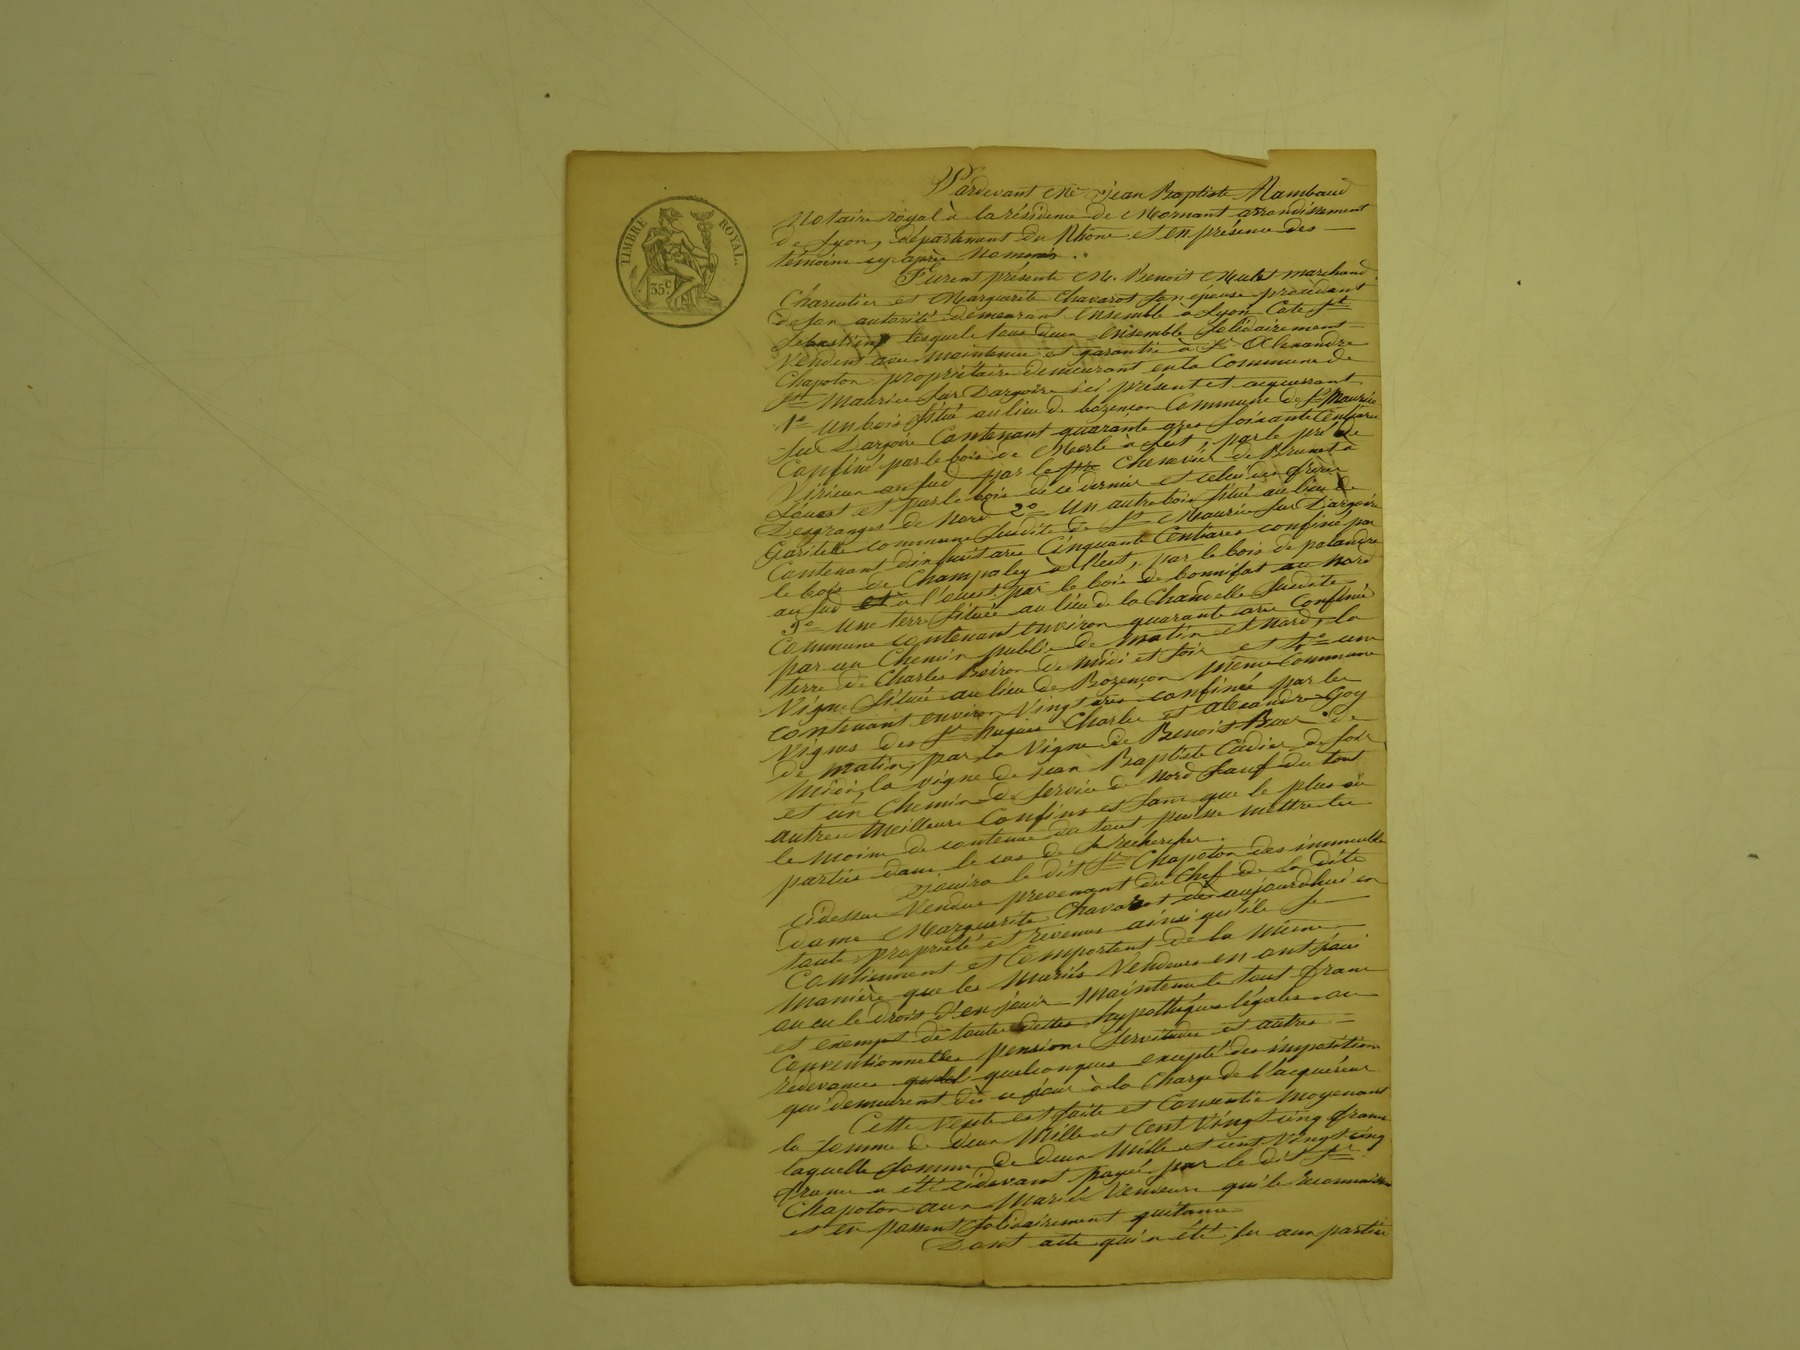 TIMBRE ROYAL.
35 c
Pardevant Me Jean Baptiste Rambaud
Notaire royal à la résidence de Mornant arrondissement
de Lyon, département du Rhône et en présence des
témoins cy après nommés.
Furent présents M. Benoit Mulet marchand
Charcutier et Marguerite Chavarot son épouse procédant
de son autorité demeurant ensemble à Lyon Cote St
Sebastien, lesquels tous deux ensemble solidairement
vendent avec maintenue et garantie à Sr Alexandre
Chapoton propriétaire demeurant en la Commune de
St Maurice sur Dargoire ici présent et acquerrant
1o un bois situé au lieu de bozençon Commune de St Maurice
sur Dargoire Contenant quarante ares soixante Centiares
Confiné par le bois de Merle à l'est, par le pré de
Virieux au sud par le Chenevier de Brunet à
Louest et par le bois de ce dernier et celui des frères
Desgranges de Nord 2o Un autre bois situé au lieu de
Garitette commune susdite de St Maurice sur Dargoire
Contenant dixhuit ares Cinquante Centiares confiné par
le bois de Champaley à l'est, par le bois de palandre
au sud et à l'ouest par le bois de bonnifat au nord
3o Une terre située au lieu de la Chanvelle susdite
Commune contenant environ quarante ares Confinée
par un Chemin public de matin et nord, la
terre de Charles Boiron de midi et soir et 4o une
Vigne située au lieu de Bozençon même Commune
contenant environ Vingt ares, confinée par les
Vignes des Srs hugues Charles et alexandre Goy
de matin, par la Vigne de Benoit de
Midi, la vigne de jean Baptiste Cadier de soir
et un Chemin de service de Nord sauf du tout
autres meilleurs Confins et sans que le plus ou
le moins de contenue du tout puisse mettre les
parties dans le cas de se rechercher.
Jouira le dit Sr Chapoton des immeubles
cidessus Vendus provenant du Chef de la dite
dame Marguerite Chavarot dès aujourdhui en
toute propriété et revenus ainsi qu'ils se
Contiennent et Comportent de la meme
manière que les mariés Vendeurs en ont joui
ou eu le droit d'en jouir. Maintenu le tout franc
et exempt de toutes dettes, hypothèques légales ou
Conventionnelles pensions servitudes et autres
redevances quelconques excepté des impositions
qui demeurent dès ce jour à la Charge de l'acquéreur
Cette Vente est faite et Consentie moyenant
la somme de deux Mille et Cent Vingt cinq francs
laquelle somme de deux Mille et cent Vingt cinq
francs a été cidevant payée par le dit Sr
Chapoton aux Mariés Vendeurs qui le reconnaissent
et en passent solidairement quitance
Dont acte qui a été lu aux parties